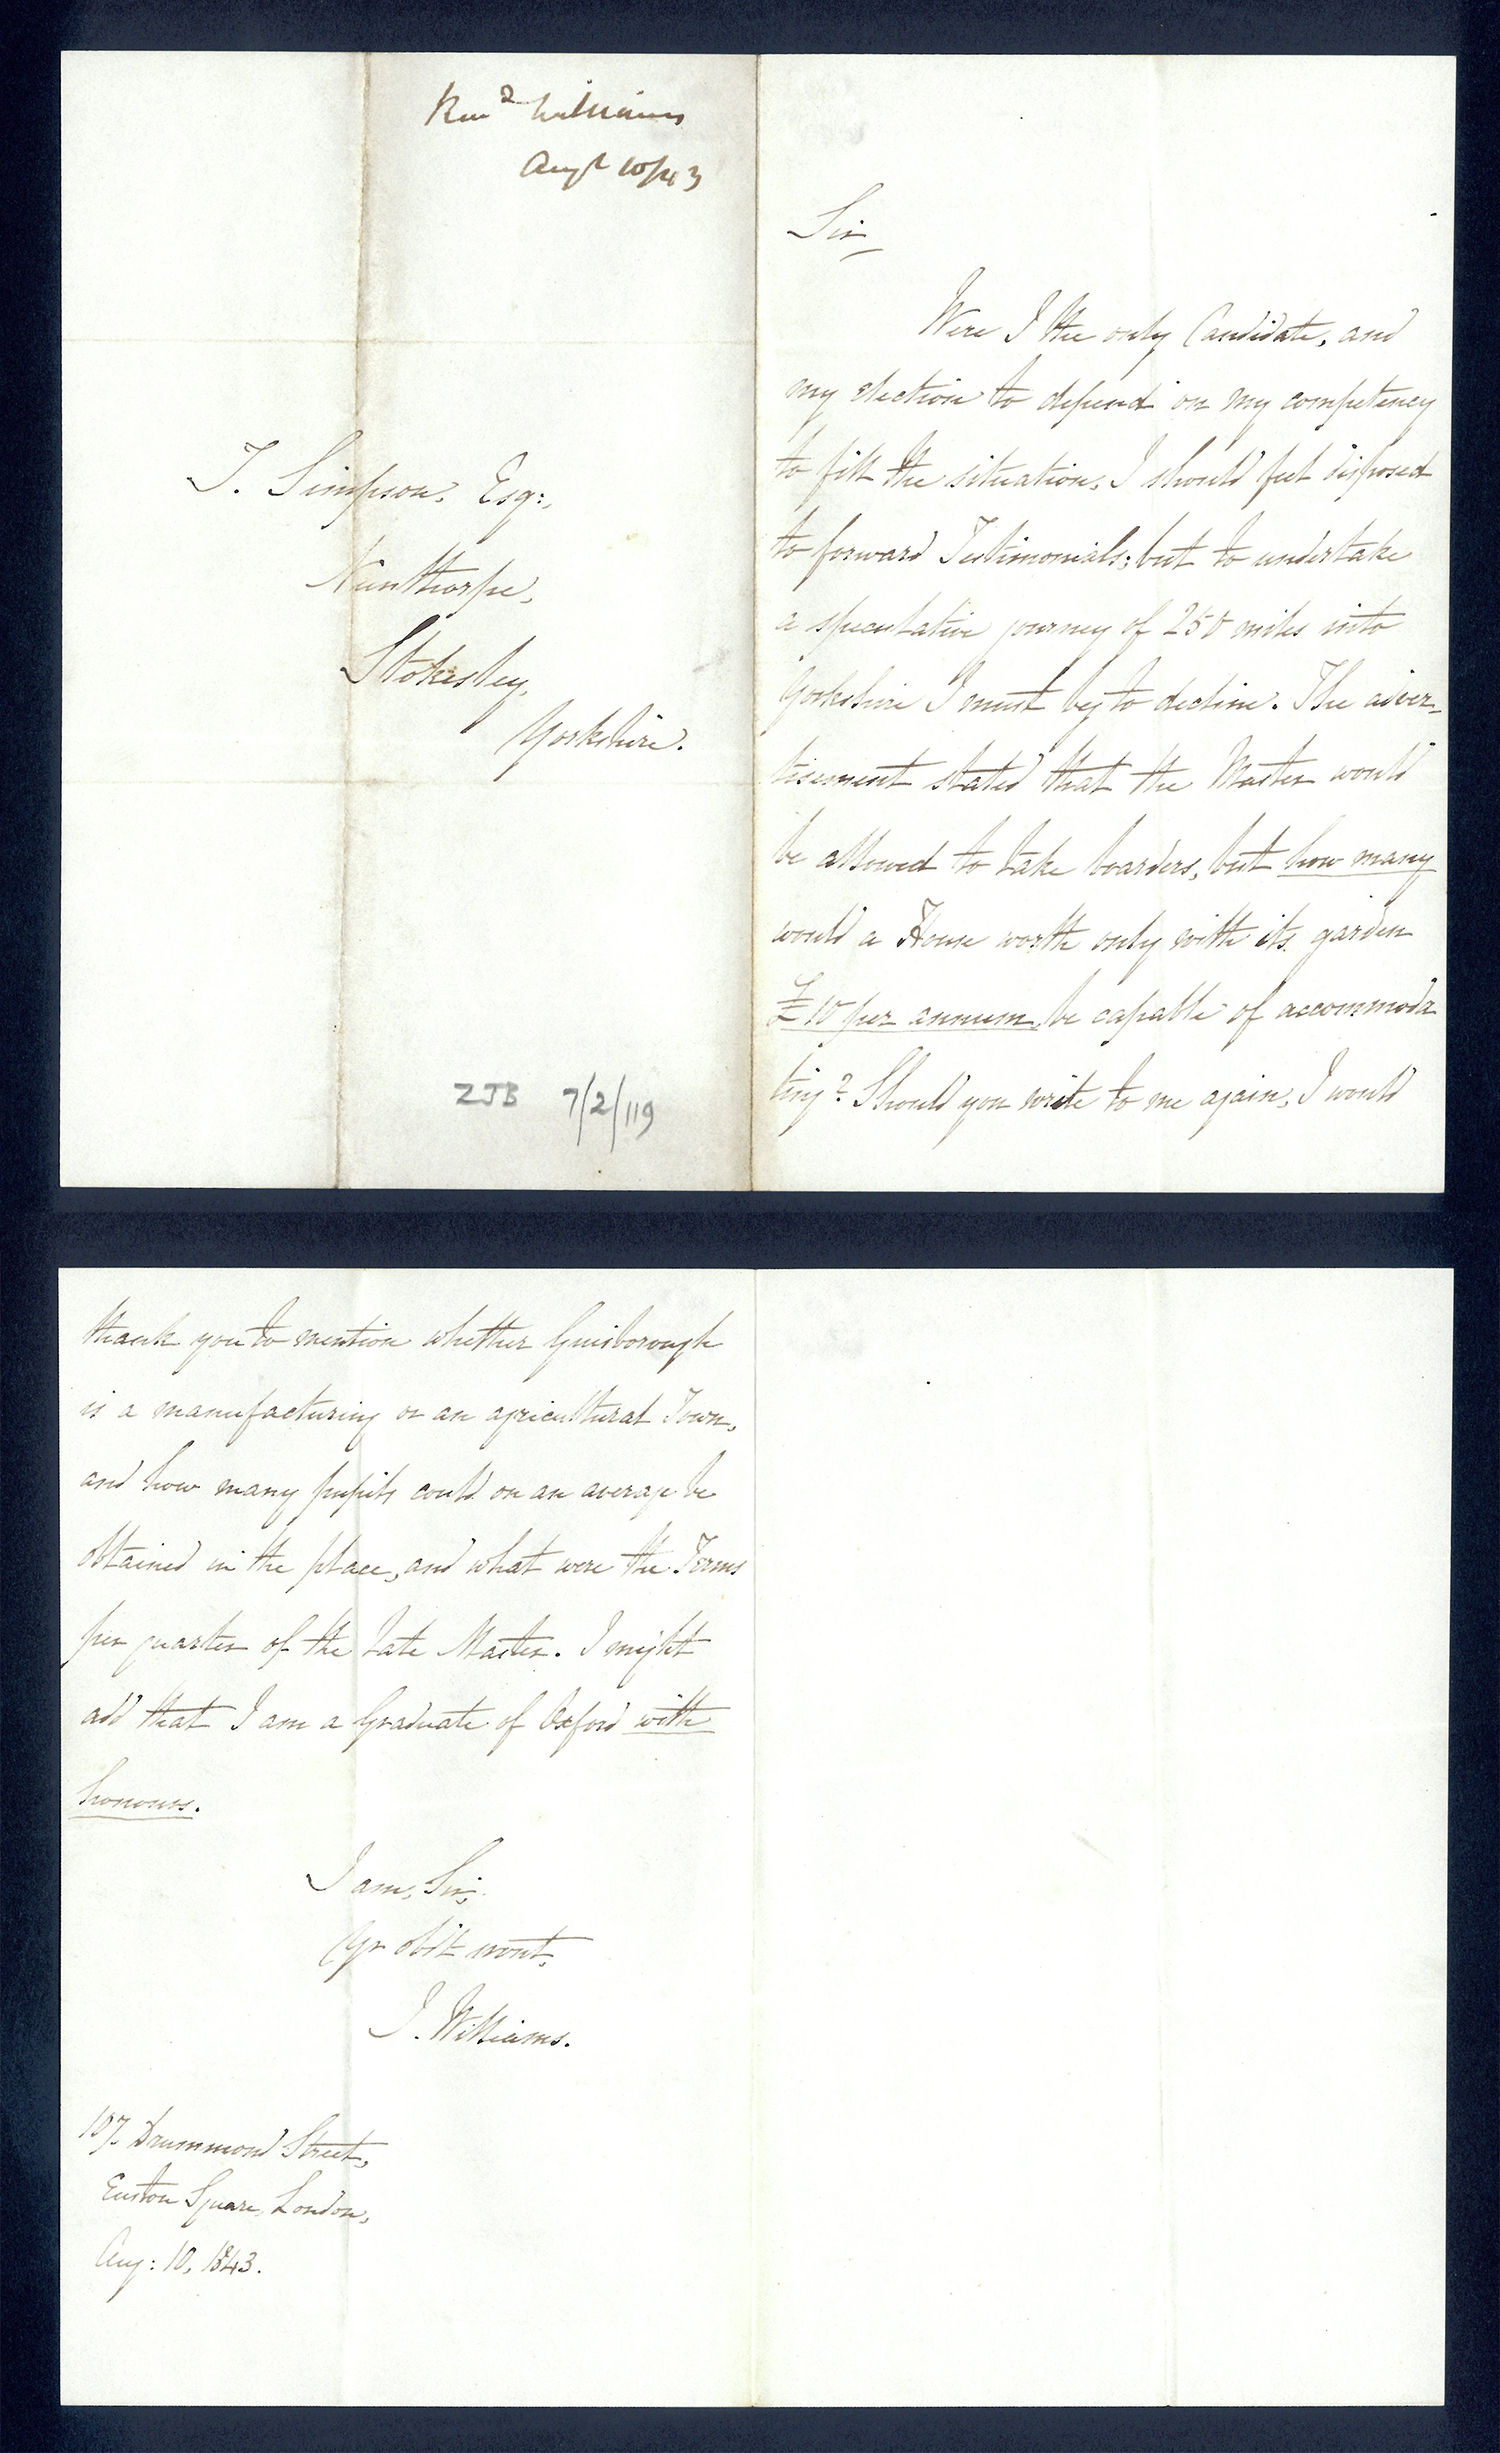 Revd Williams
Augt 10/43
T. Simpson, Esq:,
Nunthorpe,
Stokesley,
Yorkshire.
ZJB 7/2/119
Sir
Were I the only Candidate, and
my election to depend on my competency
to fill the situation, I should feel disposed
to forward Testimonials; but to undertake
a speculative journey of 250 miles into
Yorkshire I must beg to decline. The adver-
tisement stated that the Master would
be allowed to take boarders, but how many
would a House worth only with its garden
£10 per annum, be capable of accommoda
ting? Should you write to me again, I would
thank you to mention whether Guisborough
is a manufacturing or an agricultural Town,
and how many pupils could on an average be
obtained in the place, and what were the Terms
per quarter of the late Master. I might
add that I am a Graduate of Oxford with
honours.
I am, Sir,
Yr obdt servt,
J. Williams.
107. Drummond Street,
Euston Square, London,
Aug: 10, 1843.